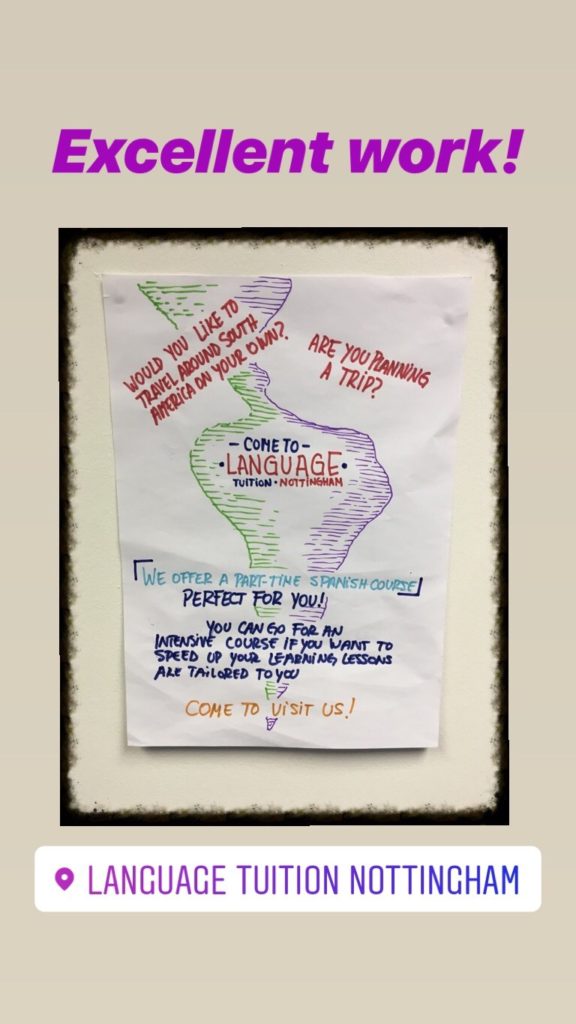 Excellent work!
WOULD YOU LIKE TO
TRAVEL AROUND SOUTH
AMERICA ON YOUR OWN?.
ARE YOU PLANNING
A TRIP?
- COME TO -
• LANGUAGE •
TUITION • NOTTINGHAM
WE OFFER A PART-TIME SPANISH COURSE
PERFECT FOR YOU!
YOU CAN GO FOR AN
INTENSIVE COURSE IF YOU WANT TO
SPEED UP YOUR LEARNING LESSONS
ARE TAILORED TO YOU
COME TO VISIT US!
LANGUAGE TUITION NOTTINGHAM